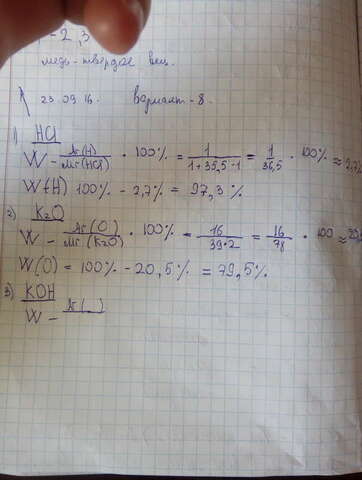 -2,3
медь-твердое вещ.
23.09.16. вариант-8.
1) HCl
W - Ar(H) / Mr(HCl) · 100% = 1 / 1+35,5·1 = 1 / 36,5 · 100% ≈ 2,7%
W(H) 100% - 2,7% = 97,3%
2) K2O
W - Ar(O) / Mr(K2O) · 100% = 16 / 39·2 = 16 / 78 · 100 ≈ 20,5
W(O) = 100% - 20,5% = 79,5%
3) KOH
W - Ar( )